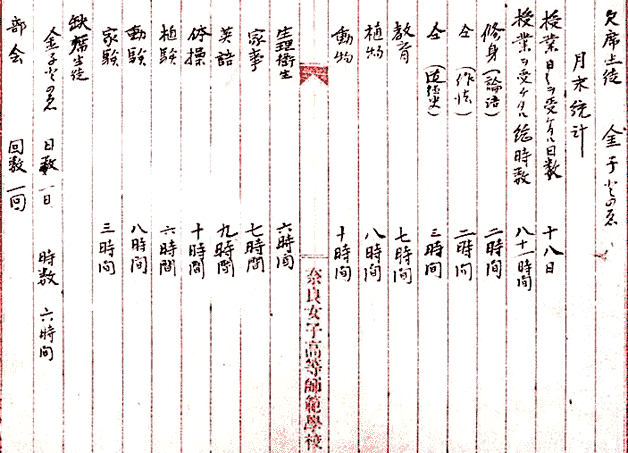 欠席生徒 金子とのゑ
月末統計
授業ヲ受ケタル日数 十八日
授業ヲ受ケタル総時数 八十一時間
修身(論語) 二時間
仝(作法) 二時間
仝(道徳史) 三時間
教育 七時間
植物 八時間
動物 十時間
奈良女子高等師範學校
生理衛生 六時間
家事 七時間
英語 九時間
体操 十時間
植験 六時間
動験 八時間
家験 三時間
缺席生徒
金子とのゑ 日数 一日 時数 六時間
部会 回数 一回